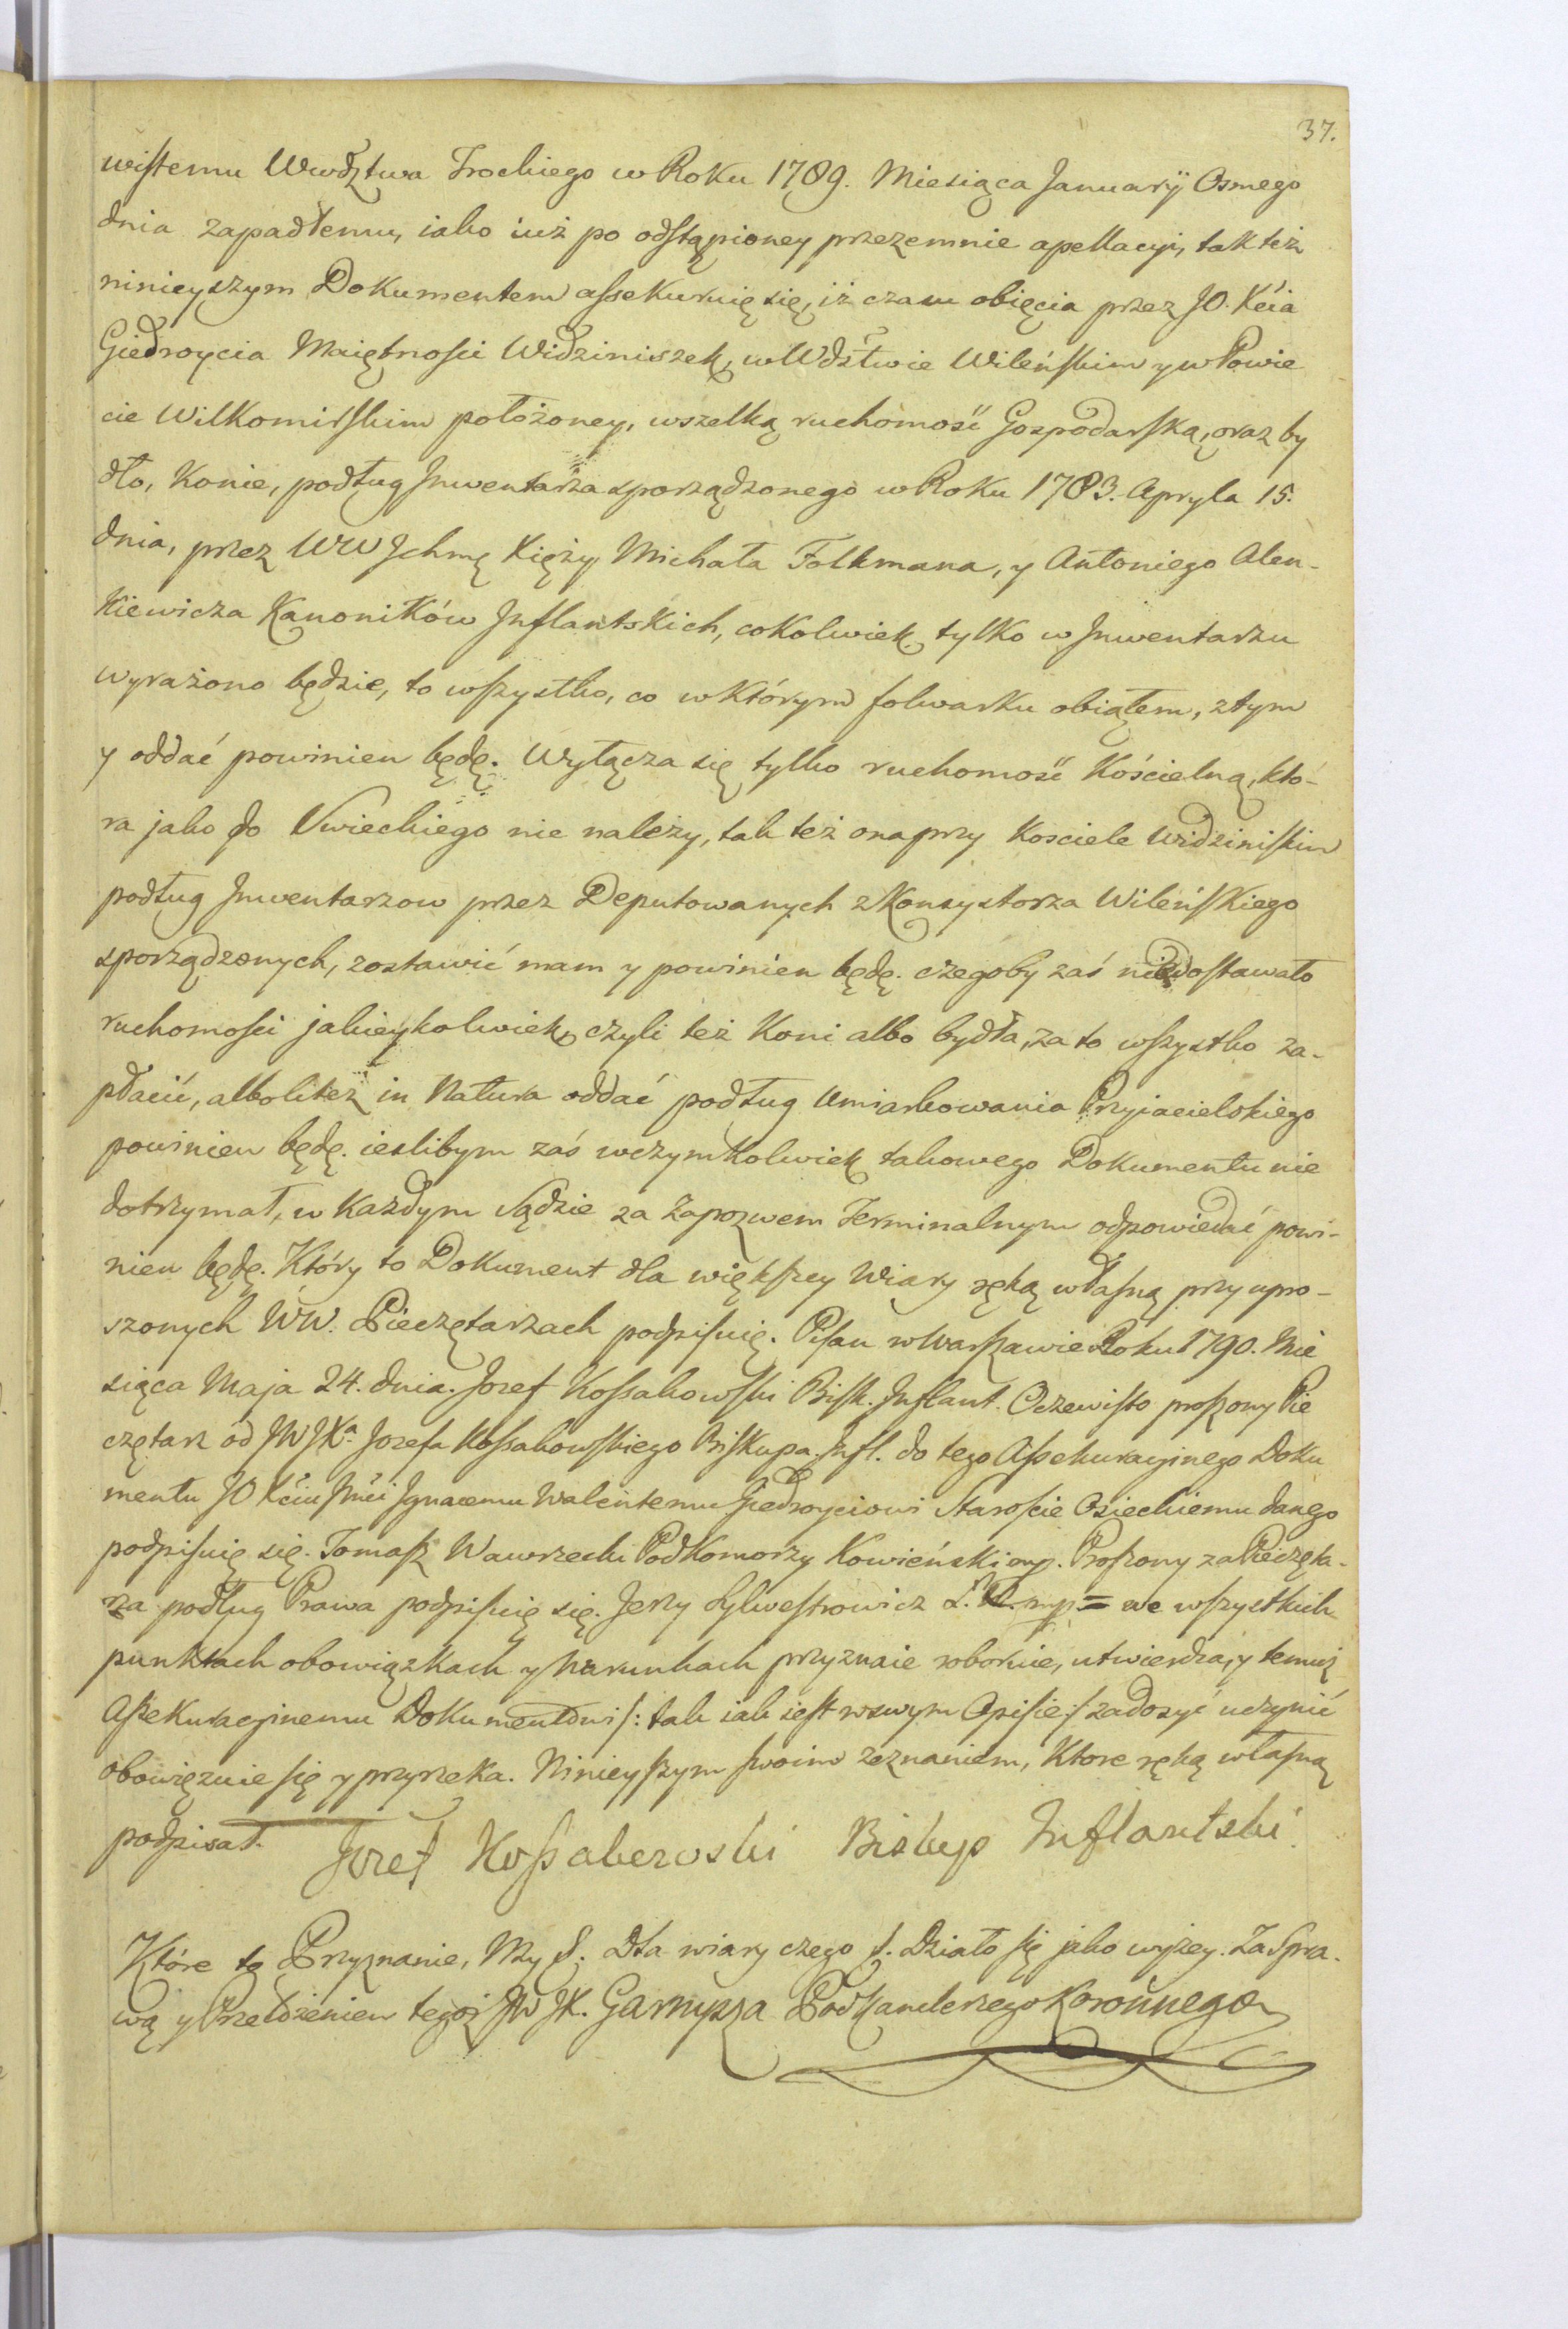 37.
wistemu Wwdztwa Trockiego w Roku 1789. Miesiąca Januarÿ Osmego
dnia zapadłemu, iako iuż po odstąpioney przezemnie apellacyi, tak też
ninieyszym Dokumentem assekuruię się, iż czasu obięcia przez JO. Xcia
Giedroycia Maiętnosci Widziniszek, w Wdztwie Wileńskim y w Powie
cie Wilkomirskim położoney, wszelką ruchomość Gospodarską, oraz by
dło, Konie, podług Inwentarza sporządzonego w Roku 1783. Apryla 15.
dnia, przez WW Ichmę Xięży Michała Folkmana, y Antoniego Alen-
kiewicza Kanoników Inflantskich, cokolwiek tylko w Inwentarzu
wyrażono będzie, to wszystko, co w którym folwarku obiąłem, z tym
y oddać powinien będę. Wyłącza się tylko ruchomość Kościelną, któ-
ra jako do Swieckiego nie należy, tak też ona przy Kosciele Widziniskim
podług Inwentarzow przez Deputowanych z Konsystorza Wileńskiego
sporządzonych, zostawić mam y powinien będę. czegoby zaś niedostawało
ruchomosci jakieykolwiek, czyli też Koni albo bydła, za to wszystko za-
płacić, albo li też in Natura oddać podług Umiarkowania Przyjacielskiego
powinien będę. ieslibym zaś w czymkolwiek takowego Dokumentu nie
dotrzymał, w każdym Sądzie za Zapozwem Terminalnym odpowiedać powi-
nien będę. Który to Dokument dla większey Wiary ręką własną przy upro-
szonych WW. Pieczętarzach podpisuię. Pisan w Warszawie Roku 1790. Mie
siąca Maja 24. dnia. Jozef Kossakowski Bisk. Inflant. Oczewisto proszony Pie
czętarz od JW JXa. Jozefa Kossakowskiego Biskupa. Infl. do tego Assekuracyinego Doku
mentu JO Xciu Jmci Ignacemu Walentemu Giedroyciowi Staroście Osieckiemu danego
podpisuię się. Tomasz Wawrzecki PodKomorzy Kowieński mp. Proszony za Pieczęta-
rza podług Prawa podpisuię się. Jerzy Sylwestrowicz mp = we wszystkich
punktach obowiązkach y Warunkach przyznaie roboruie, utwierdza, y temuż
Assekuracyinemu Dokumentowi /: tak iak iest w swym Opisie :/ zadosyć uczynić
obowięzuie się y przyrzeka. Ninieyszym swoim zeznaniem, Ktore ręką własną
podpisał.
Jozef Kossakowski Biskup Inflantski
Które to Przyznanie, My S. Dla wiary czego S. Działo się jako wyżey. Za Spra-
wą y Przełożeniem tegoż JW JX. Garnysza PodKanclerzego Koronnego